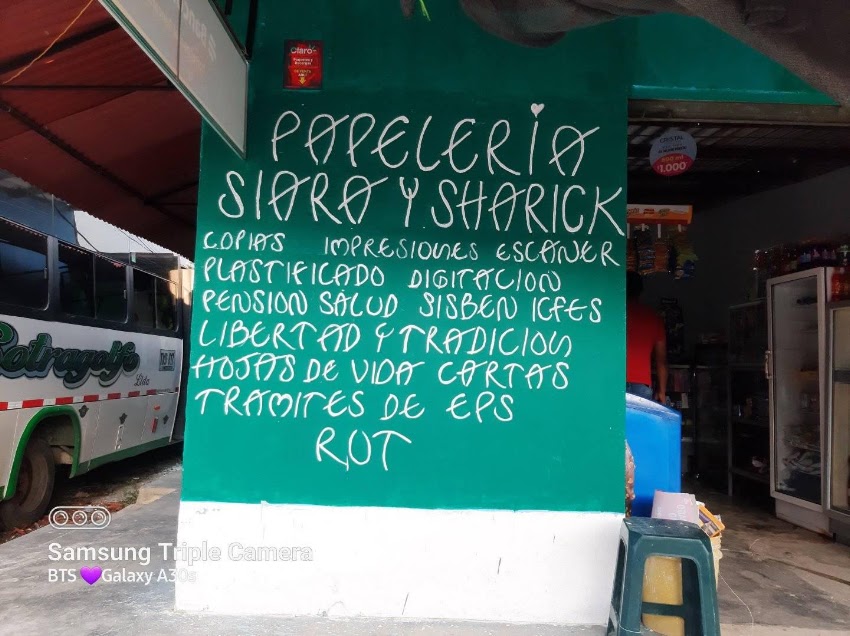 Claro
PAPELERIA
SIARA Y SHARICK
COPIAS IMPRESIONES ESCANER
PLASTIFICADO DIGITACION
PENSION SALUD SISBEN ICFES
LIBERTAD Y TRADICION
HOJAS DE VIDA CARTAS
TRAMITES DE EPS
RUT
CRISTAL
$1.000
Cotragolfo
Ltda
Samsung Triple Camera
BTS 💜Galaxy A30s